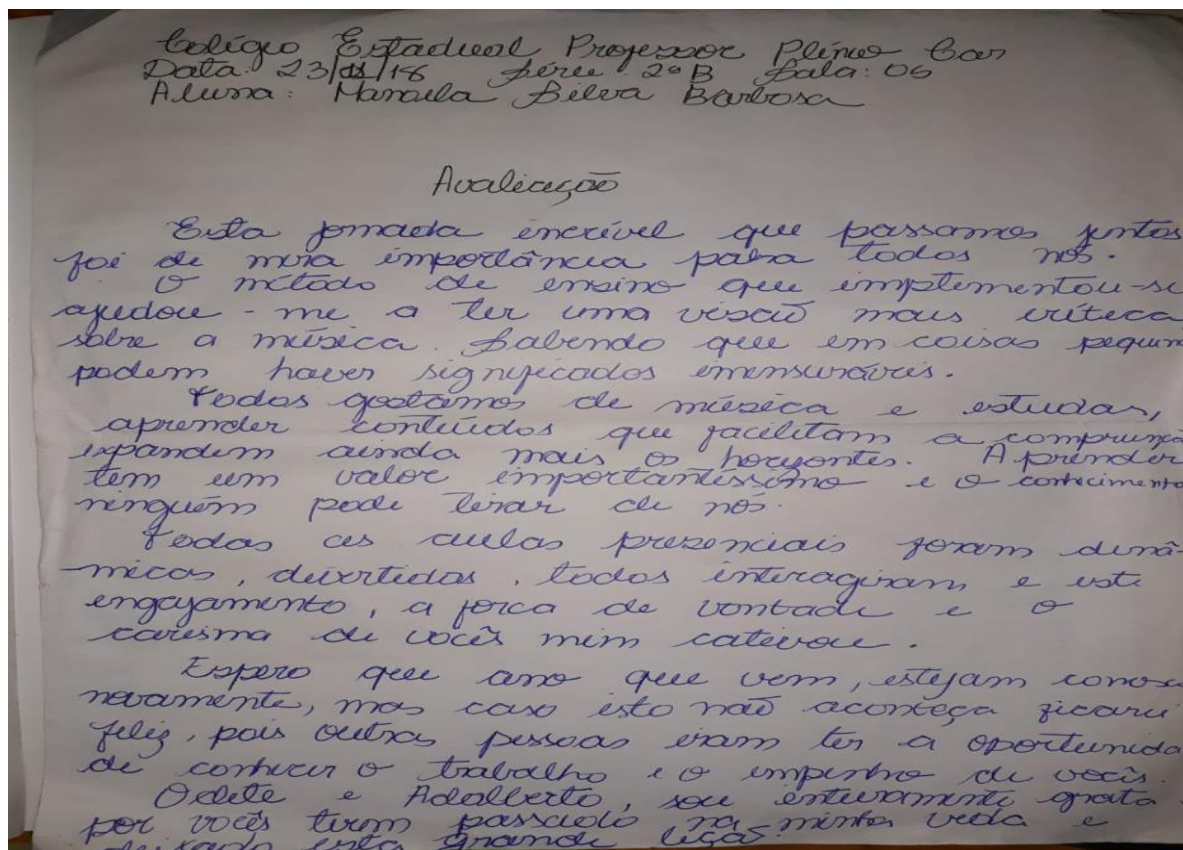 Colégio Estadual Professor Plínio Car
Data: 23/11/18 Série: 2º B Sala: 06
Aluna: Manoela Silva Barbosa
Avaliação
Esta jornada incrível que passamos juntos
foi de mira importância para todos nós.
O método de ensino que implementou-se
ajudou-me a ter uma visão mais crítica
sobre a música. Sabendo que em coisas pequen
podem haver significados imensuráveis.
Todos gostamos de música e estudar,
aprender conteúdos que facilitam a compreensã
expandem ainda mais os horizontes. Aprender
tem um valor importantíssimo e o conhecimento
ninguém pode tirar de nós.
Todas as aulas presenciais foram dinâ-
micas, divertidas, todos interagiram e este
engajamento, a forca de vontade e o
carisma de vocês mim cativou.
Espero que ano que vem, estejam conosc
novamente, mas caso isto não aconteça ficarei
feliz, pois outras pessoas iram ter a oportunida
de conhecer o trabalho e o empenho de vocês.
Odete e Adalberto, sou inteiramente grata
por vocês terem passado na minha vida e
deixado esta grande lição